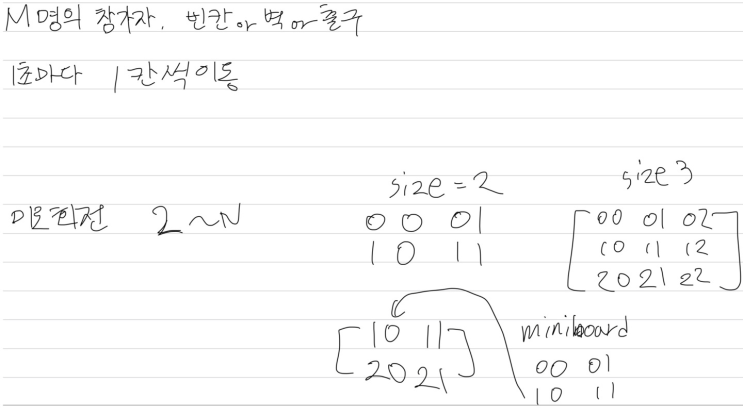 M명의 참가자. 빈칸 or 벽 or 출구
1초마다 1칸씩이동
size = 2
size 3
미로회전 2~N
00 01
10 11
00 01 02
10 11 12
20 21 22
10 11
20 21
miniboard
00 01
10 11